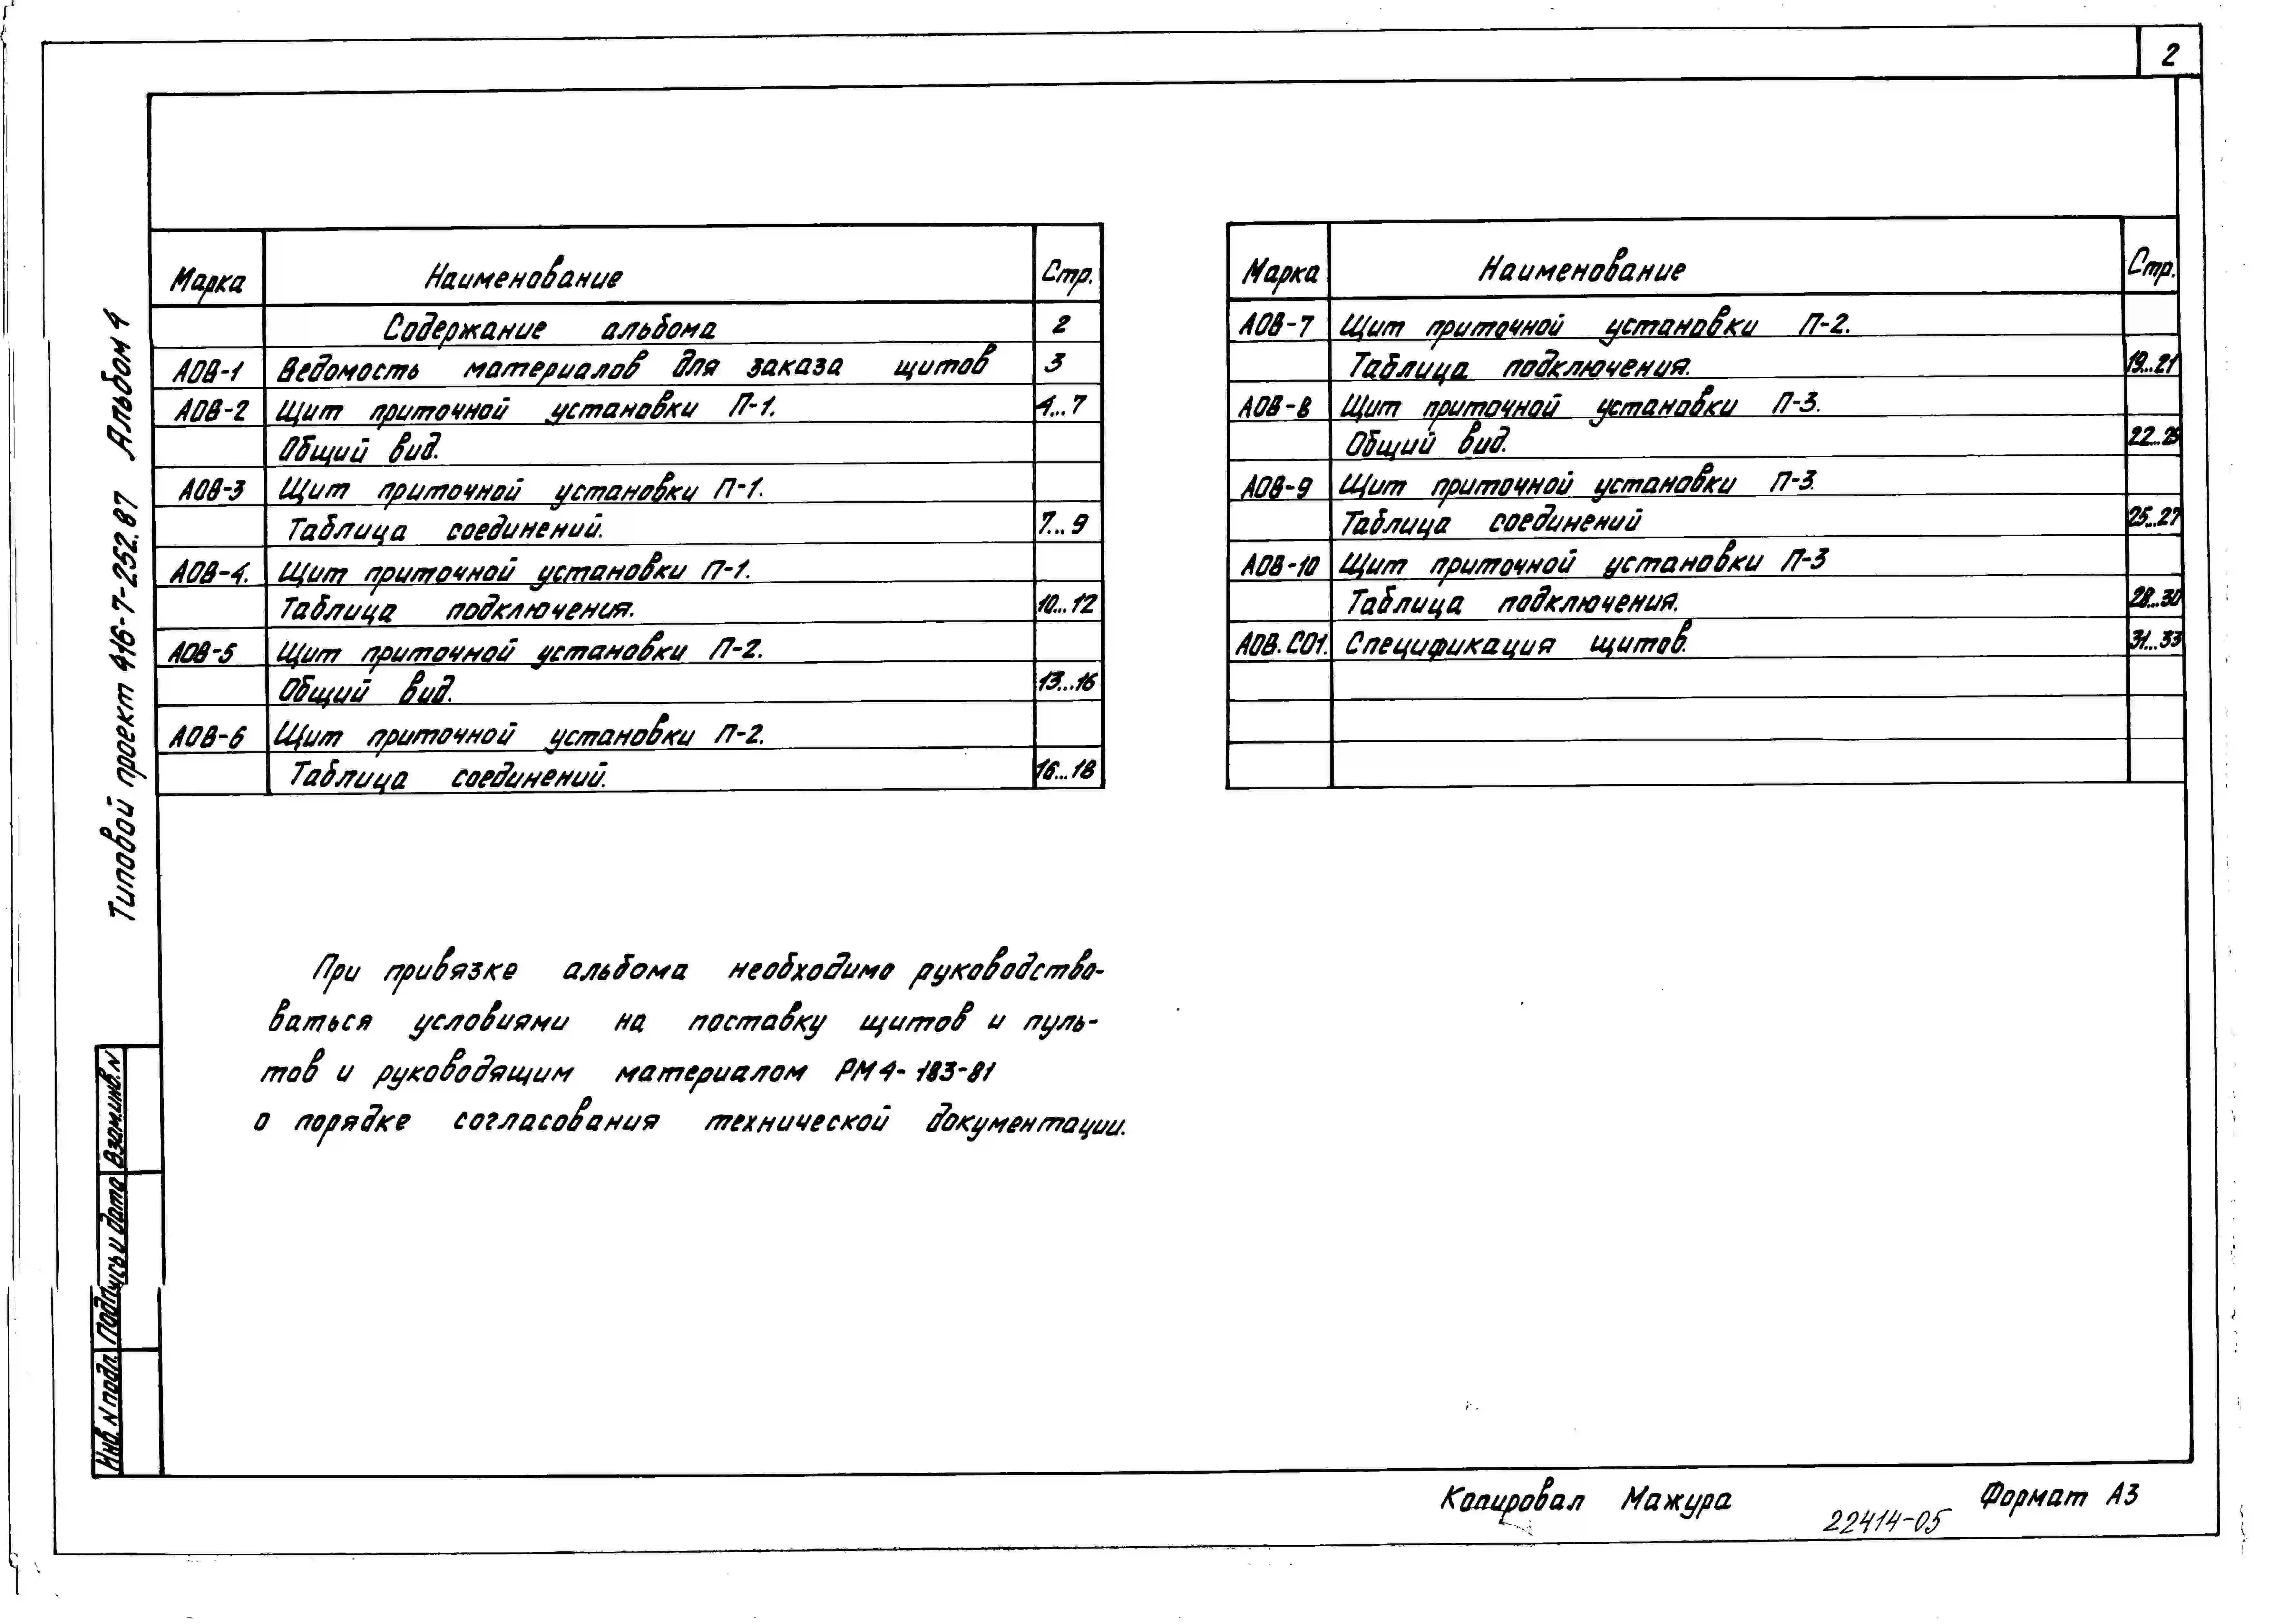 2
Типовой проект 416-7-252.87 Альбом 4
Марка Наименование Стр.
Содержание альбома 2
АОВ-1 Ведомость материалов для заказа щитов 3
АОВ-2 Щит приточной установки П-1. 4...7
Общий вид.
АОВ-3 Щит приточной установки П-1.
Таблица соединений. 7...9
АОВ-4. Щит приточной установки П-1.
Таблица подключения. 10...12
АОВ-5 Щит приточной установки П-2.
Общий вид. 13...16
АОВ-6 Щит приточной установки П-2.
Таблица соединений. 16...18
Марка Наименование Стр.
АОВ-7 Щит приточной установки П-2.
Таблица подключения. 19...21
АОВ-8 Щит приточной установки П-3.
Общий вид. 22...25
АОВ-9 Щит приточной установки П-3.
Таблица соединений 25...27
АОВ-10 Щит приточной установки П-3
Таблица подключения. 28...30
АОВ.СО1. Спецификация щитов. 31...33
При привязке альбома необходимо руководство-
ваться условиями на поставку щитов и пуль-
тов и руководящим материалом РМ4-183-81
о порядке согласования технической документации.
Взам.инв.N
Подпись и дата
Инв.N подл.
Копировал Мажура
22414-05
Формат А3